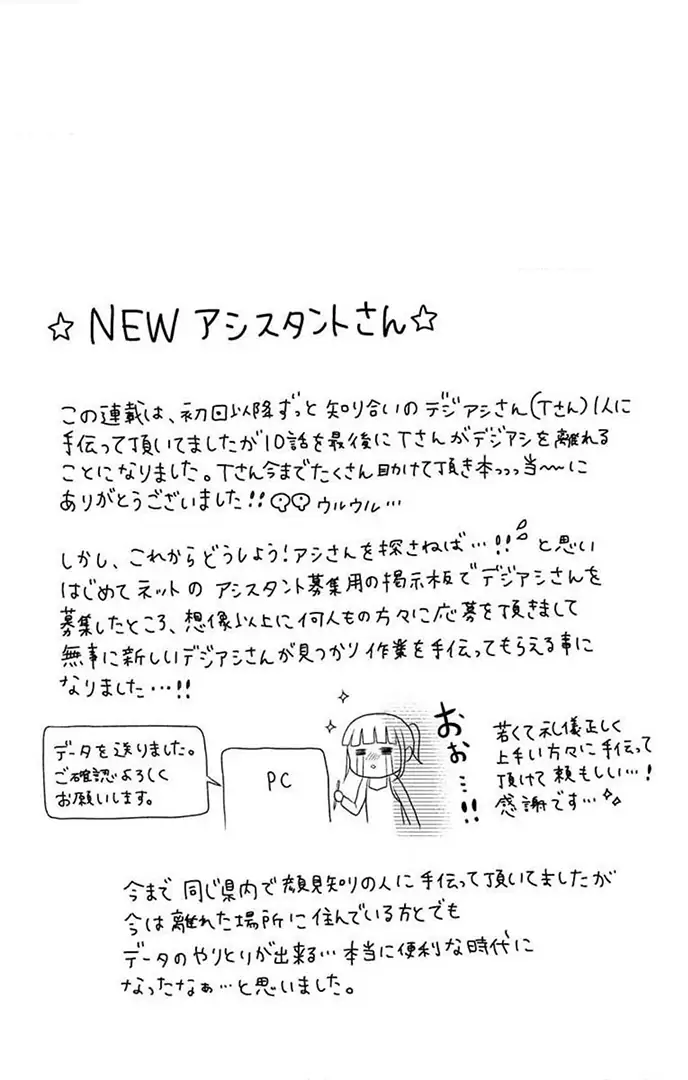 ☆NEW アシスタントさん☆
この連載は、初回以降ずっと知り合いのデジアシさん(Tさん)1人に
手伝って頂いてましたが10話を最後にTさんがデジアシを離れる
ことになりました。Tさん今までたくさん助けて頂き本っっっ当〜〜に
ありがとうございました!!ウルウル…
しかし、これからどうしよう!アシさんを探さねば…!!と思い
はじめてネットのアシスタント募集用の掲示板でデジアシさんを
募集したところ、想像以上に何人もの方々に応募を頂きまして
無事に新しいデジアシさんが見つかり作業を手伝ってもらえる事に
なりました…!!
データを送りました。
ご確認よろしく
お願いします。
PC
おぉ…!!
若くて礼儀正しく
上手い方々に手伝って
頂けて頼もしい…!
感謝です…
今まで同じ県内で顔見知りの人に手伝って頂いてましたが
今は離れた場所に住んでいる方とでも
データのやりとりが出来る…本当に便利な時代に
なったなぁ…と思いました。